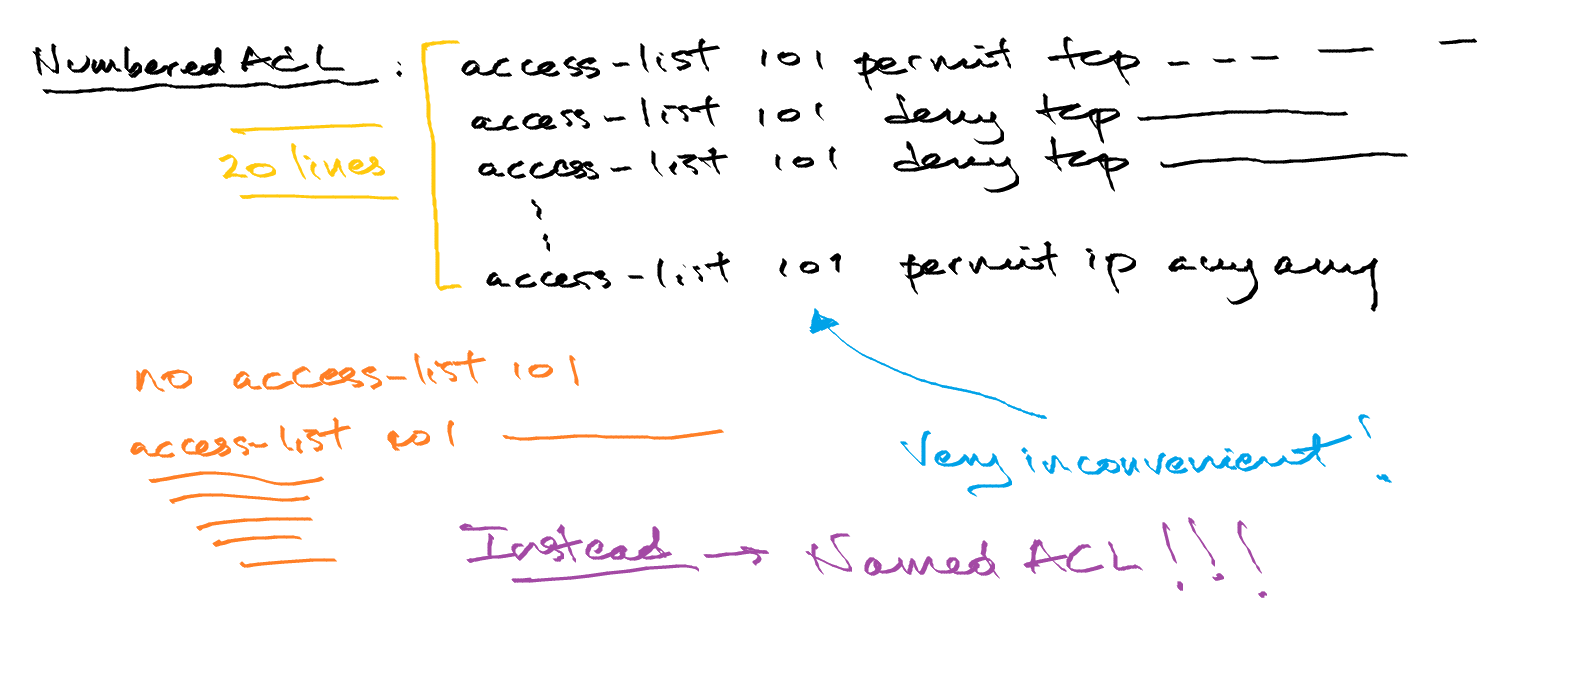 Numbered ACL : access-list 101 permit tcp - - - — –
access-list 101 deny tcp ————
20 lines access-list 101 deny tcp ————
access-list 101 permit ip any any
no access-list 101
access-list 101 ————
Very inconvenient!
Instead → Named ACL!!!